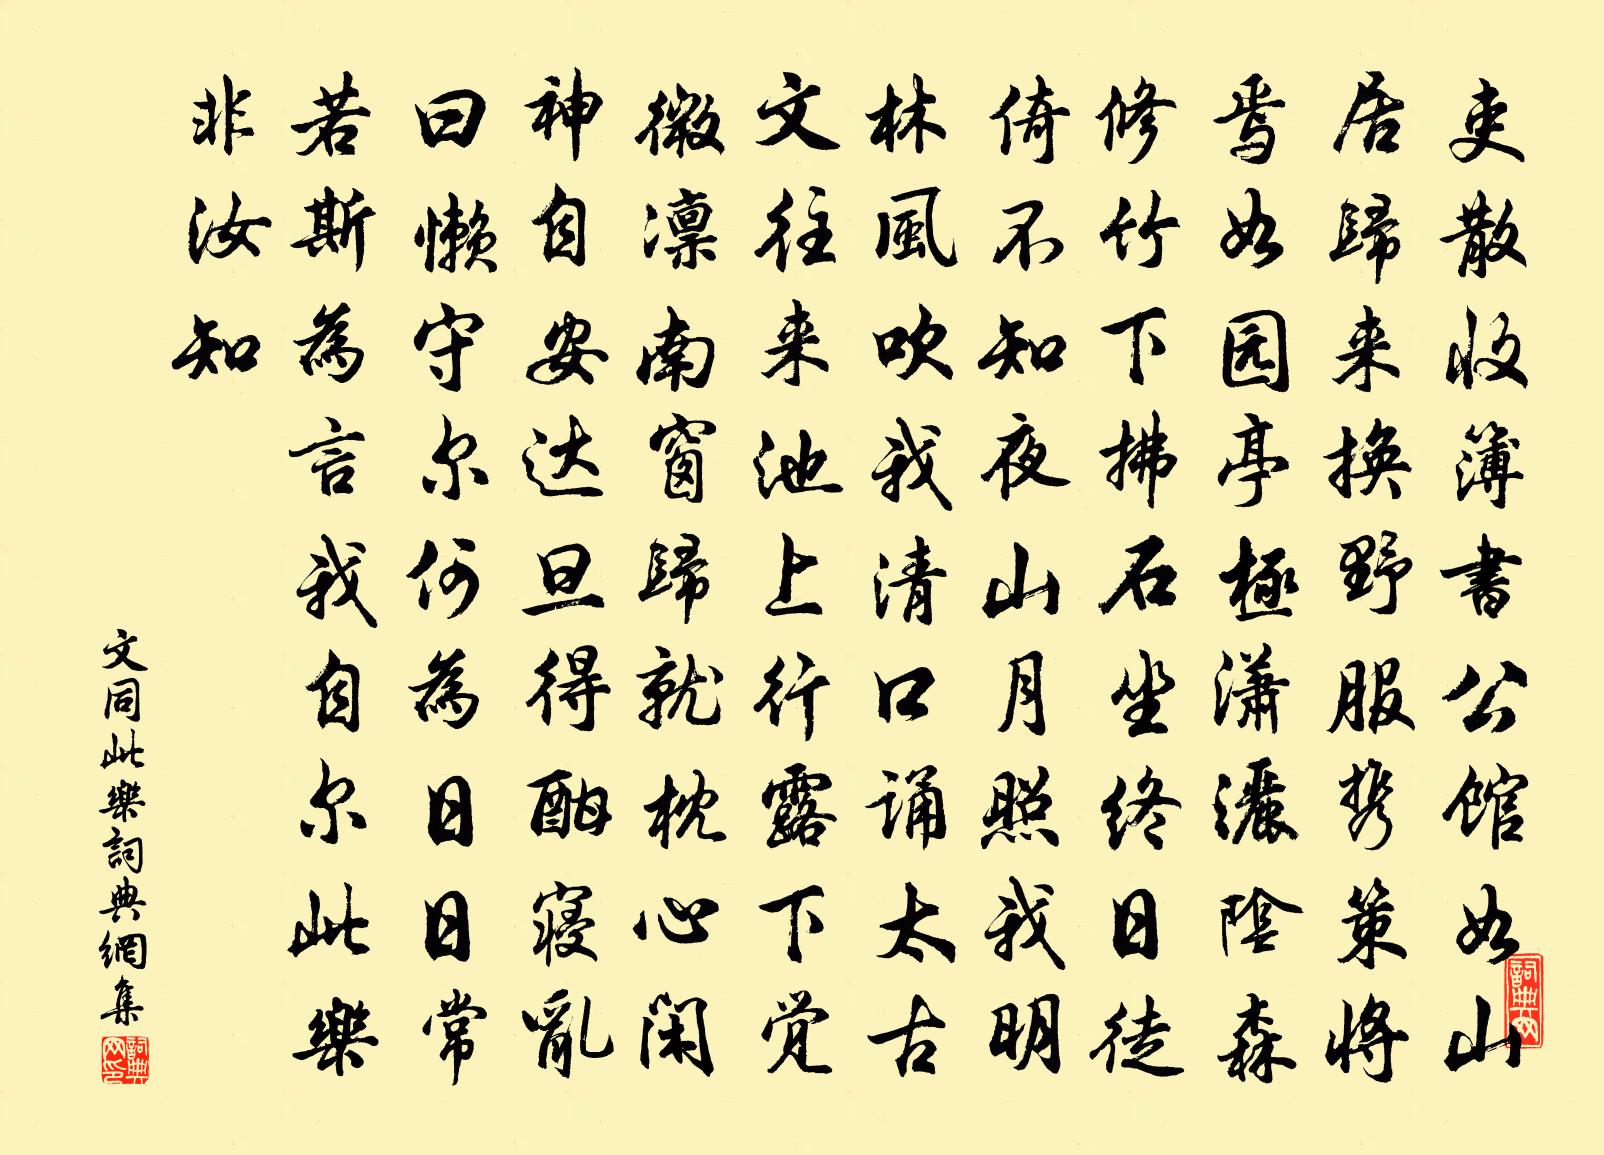 吏散收簿書公館如山
居歸来換野服携策将
焉如园亭極瀟灑陰森
修竹下拂石坐终日徒
倚不知夜山月照我明
林風吹我清口诵太古
文往来池上行露下觉
微凛南窗歸就枕心闲
神自安达旦得酣寝亂
曰懒守尔何為日日常
若斯為言我自尔此樂
非汝知
文同此樂詞典網集
詞典网
詞典网印